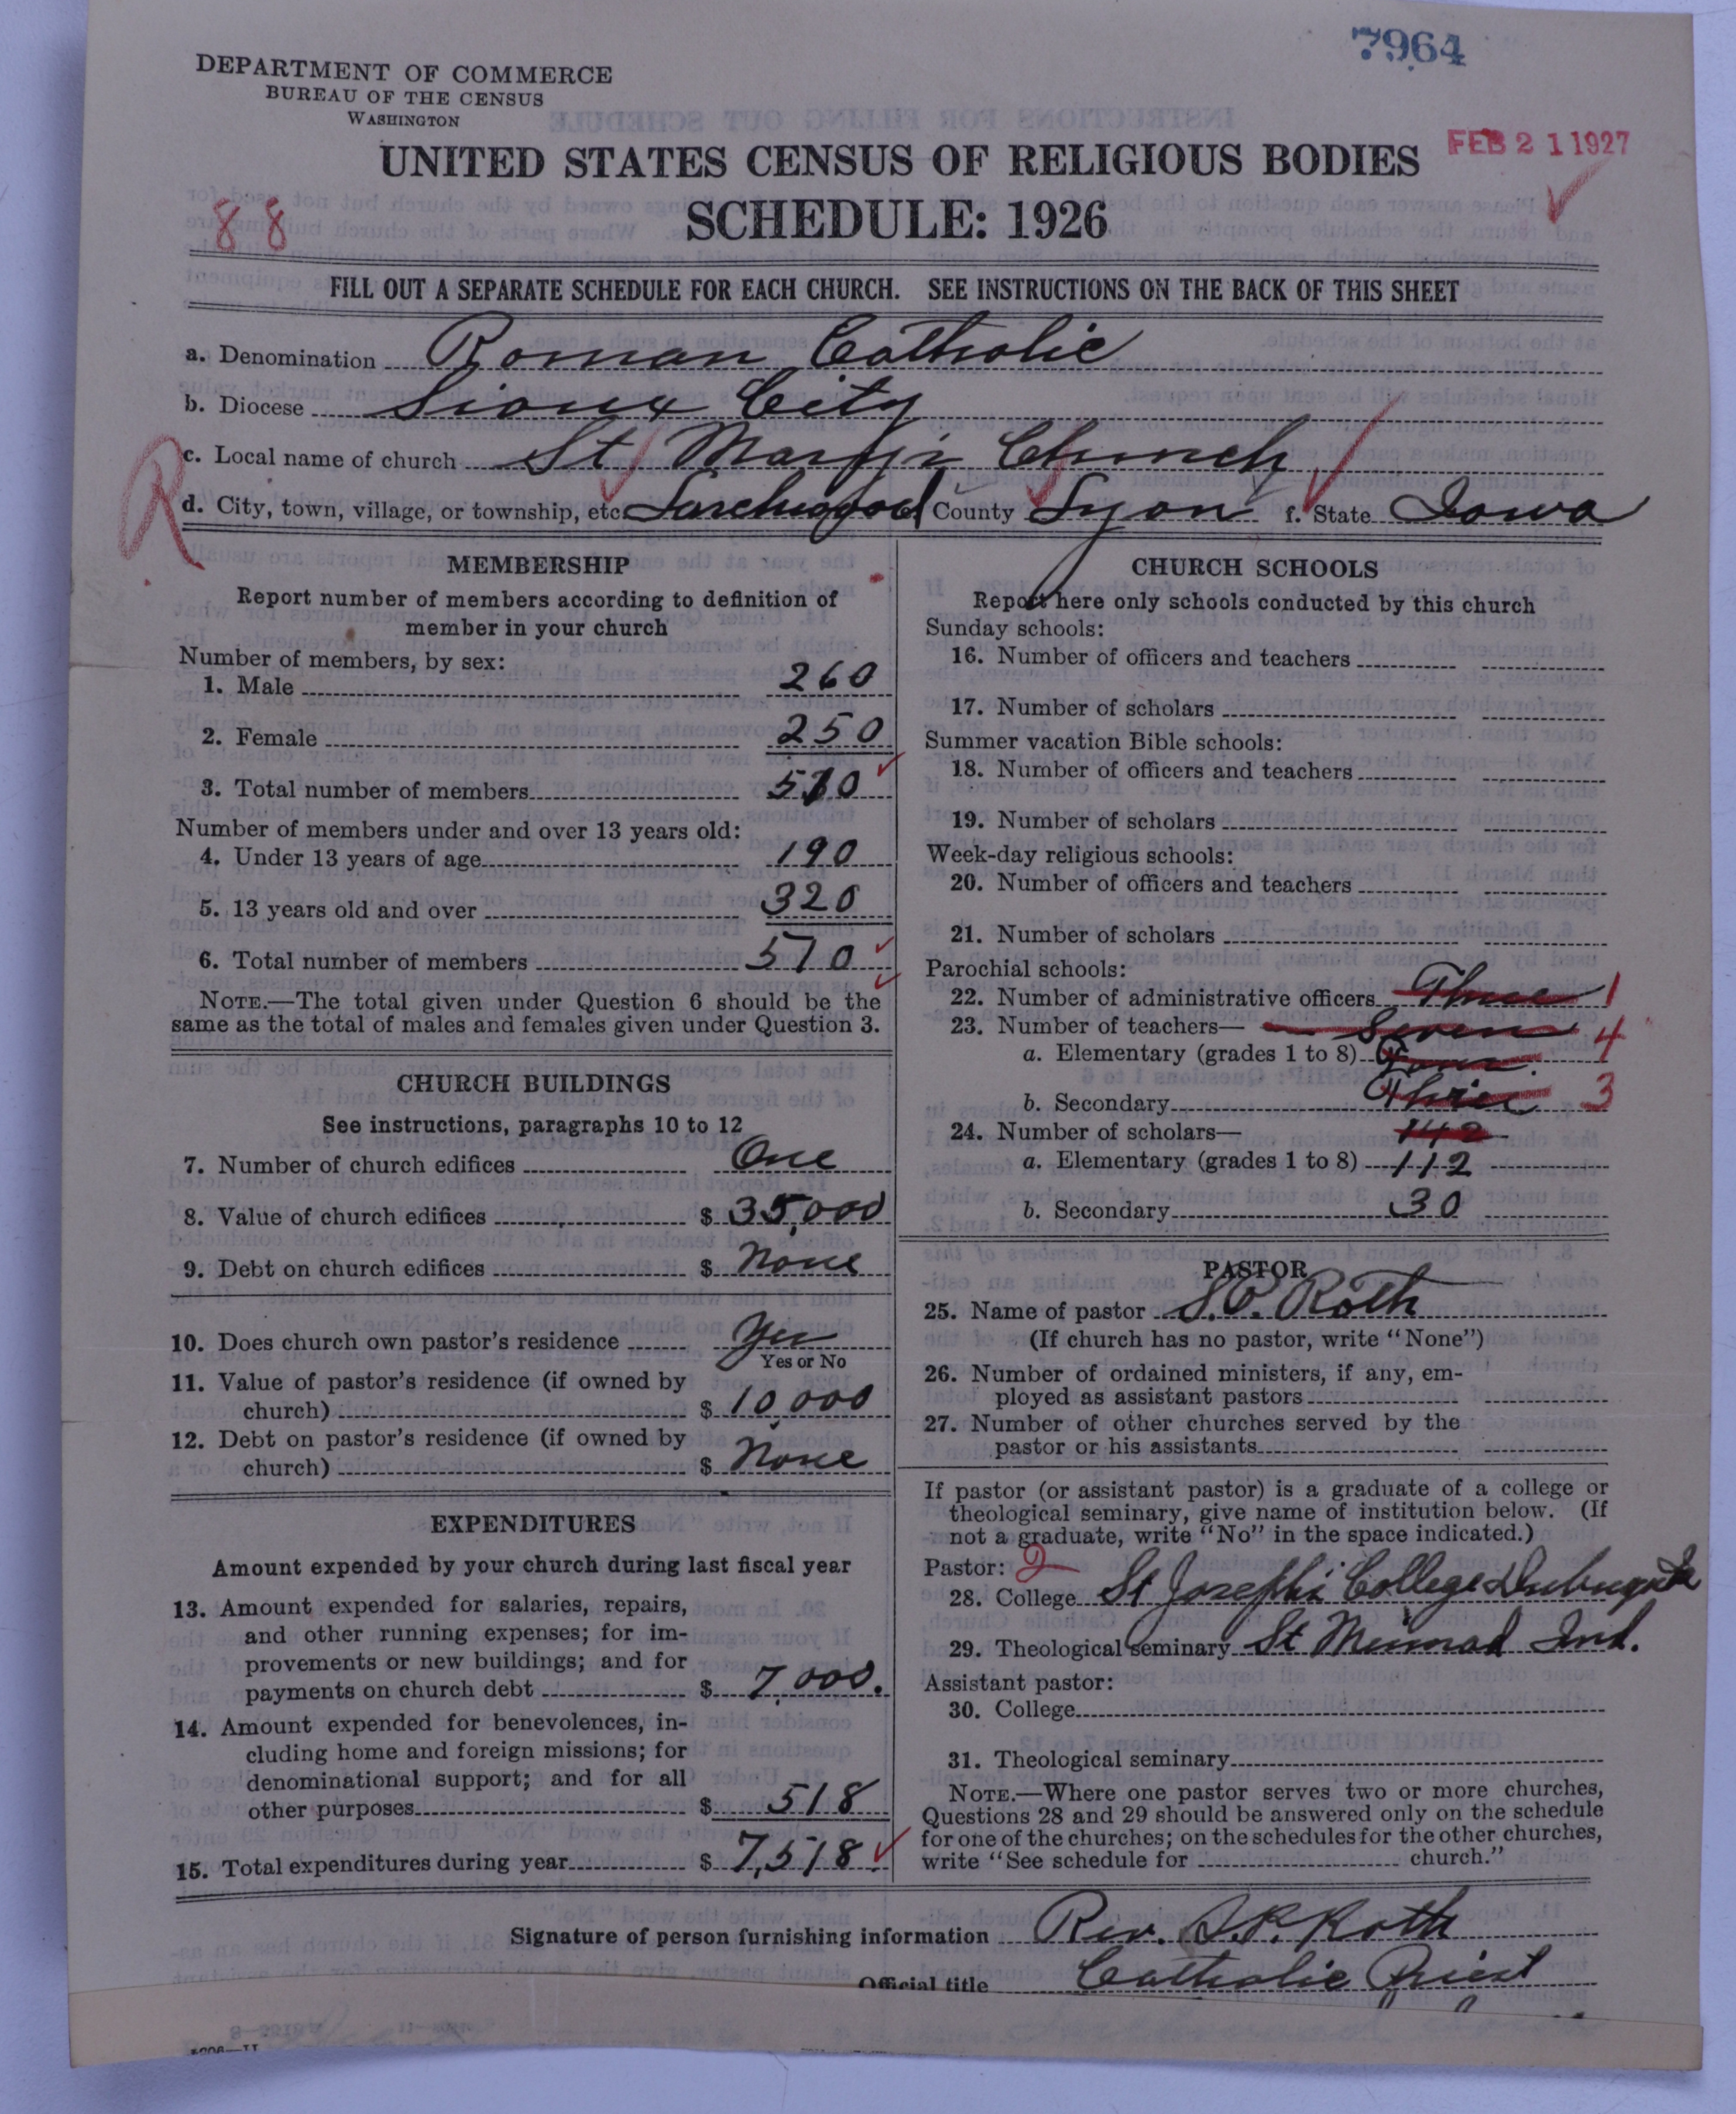 7964
DEPARTMENT OF COMMERCE
BUREAU OF THE CENSUS
WASHINGTON
UNITED STATES CENSUS OF RELIGIOUS BODIES
FEB 21 1927
88
SCHEDULE: 1926
FILL OUT A SEPARATE SCHEDULE FOR EACH CHURCH. SEE INSTRUCTIONS ON THE BACK OF THIS SHEET
a. Denomination Roman Catholic
b. Diocese Sioux City
c. Local name of church St Mary's Church
R
d. City, town, village, or township, etc. Larchwood County Lyon f. State Iowa
MEMBERSHIP
Report number of members according to definition of
member in your church
Number of members, by sex:
1. Male 260
2. Female 250
3. Total number of members 510
Number of members under and over 13 years old:
4. Under 13 years of age 190
5. 13 years old and over 320
6. Total number of members 510
NOTE.—The total given under Question 6 should be the
same as the total of males and females given under Question 3.
CHURCH BUILDINGS
See instructions, paragraphs 10 to 12
7. Number of church edifices One
8. Value of church edifices $ 35,000
9. Debt on church edifices $ None
10. Does church own pastor's residence Yes
Yes or No
11. Value of pastor's residence (if owned by
church) $ 10,000
12. Debt on pastor's residence (if owned by
church) $ None
EXPENDITURES
Amount expended by your church during last fiscal year
13. Amount expended for salaries, repairs,
and other running expenses; for im-
provements or new buildings; and for
payments on church debt $ 7,000.
14. Amount expended for benevolences, in-
cluding home and foreign missions; for
denominational support; and for all
other purposes $ 518
15. Total expenditures during year $ 7,518
CHURCH SCHOOLS
Report here only schools conducted by this church
Sunday schools:
16. Number of officers and teachers
17. Number of scholars
Summer vacation Bible schools:
18. Number of officers and teachers
19. Number of scholars
Week-day religious schools:
20. Number of officers and teachers
21. Number of scholars
Parochial schools:
22. Number of administrative officers Three 1
23. Number of teachers— Seven
a. Elementary (grades 1 to 8) Four 4
b. Secondary Three 3
24. Number of scholars— 142
a. Elementary (grades 1 to 8) 112
b. Secondary 30
PASTOR
25. Name of pastor S.P. Roth
(If church has no pastor, write "None")
26. Number of ordained ministers, if any, em-
ployed as assistant pastors
27. Number of other churches served by the
pastor or his assistants
If pastor (or assistant pastor) is a graduate of a college or
theological seminary, give name of institution below. (If
not a graduate, write "No" in the space indicated.)
Pastor: 2
28. College St Josephs College Dubuque Ia
29. Theological seminary St Meinrad Ind.
Assistant pastor:
30. College
31. Theological seminary
NOTE.—Where one pastor serves two or more churches,
Questions 28 and 29 should be answered only on the schedule
for one of the churches; on the schedules for the other churches,
write "See schedule for church."
Signature of person furnishing information Rev. S.P. Roth
Official title Catholic Priest